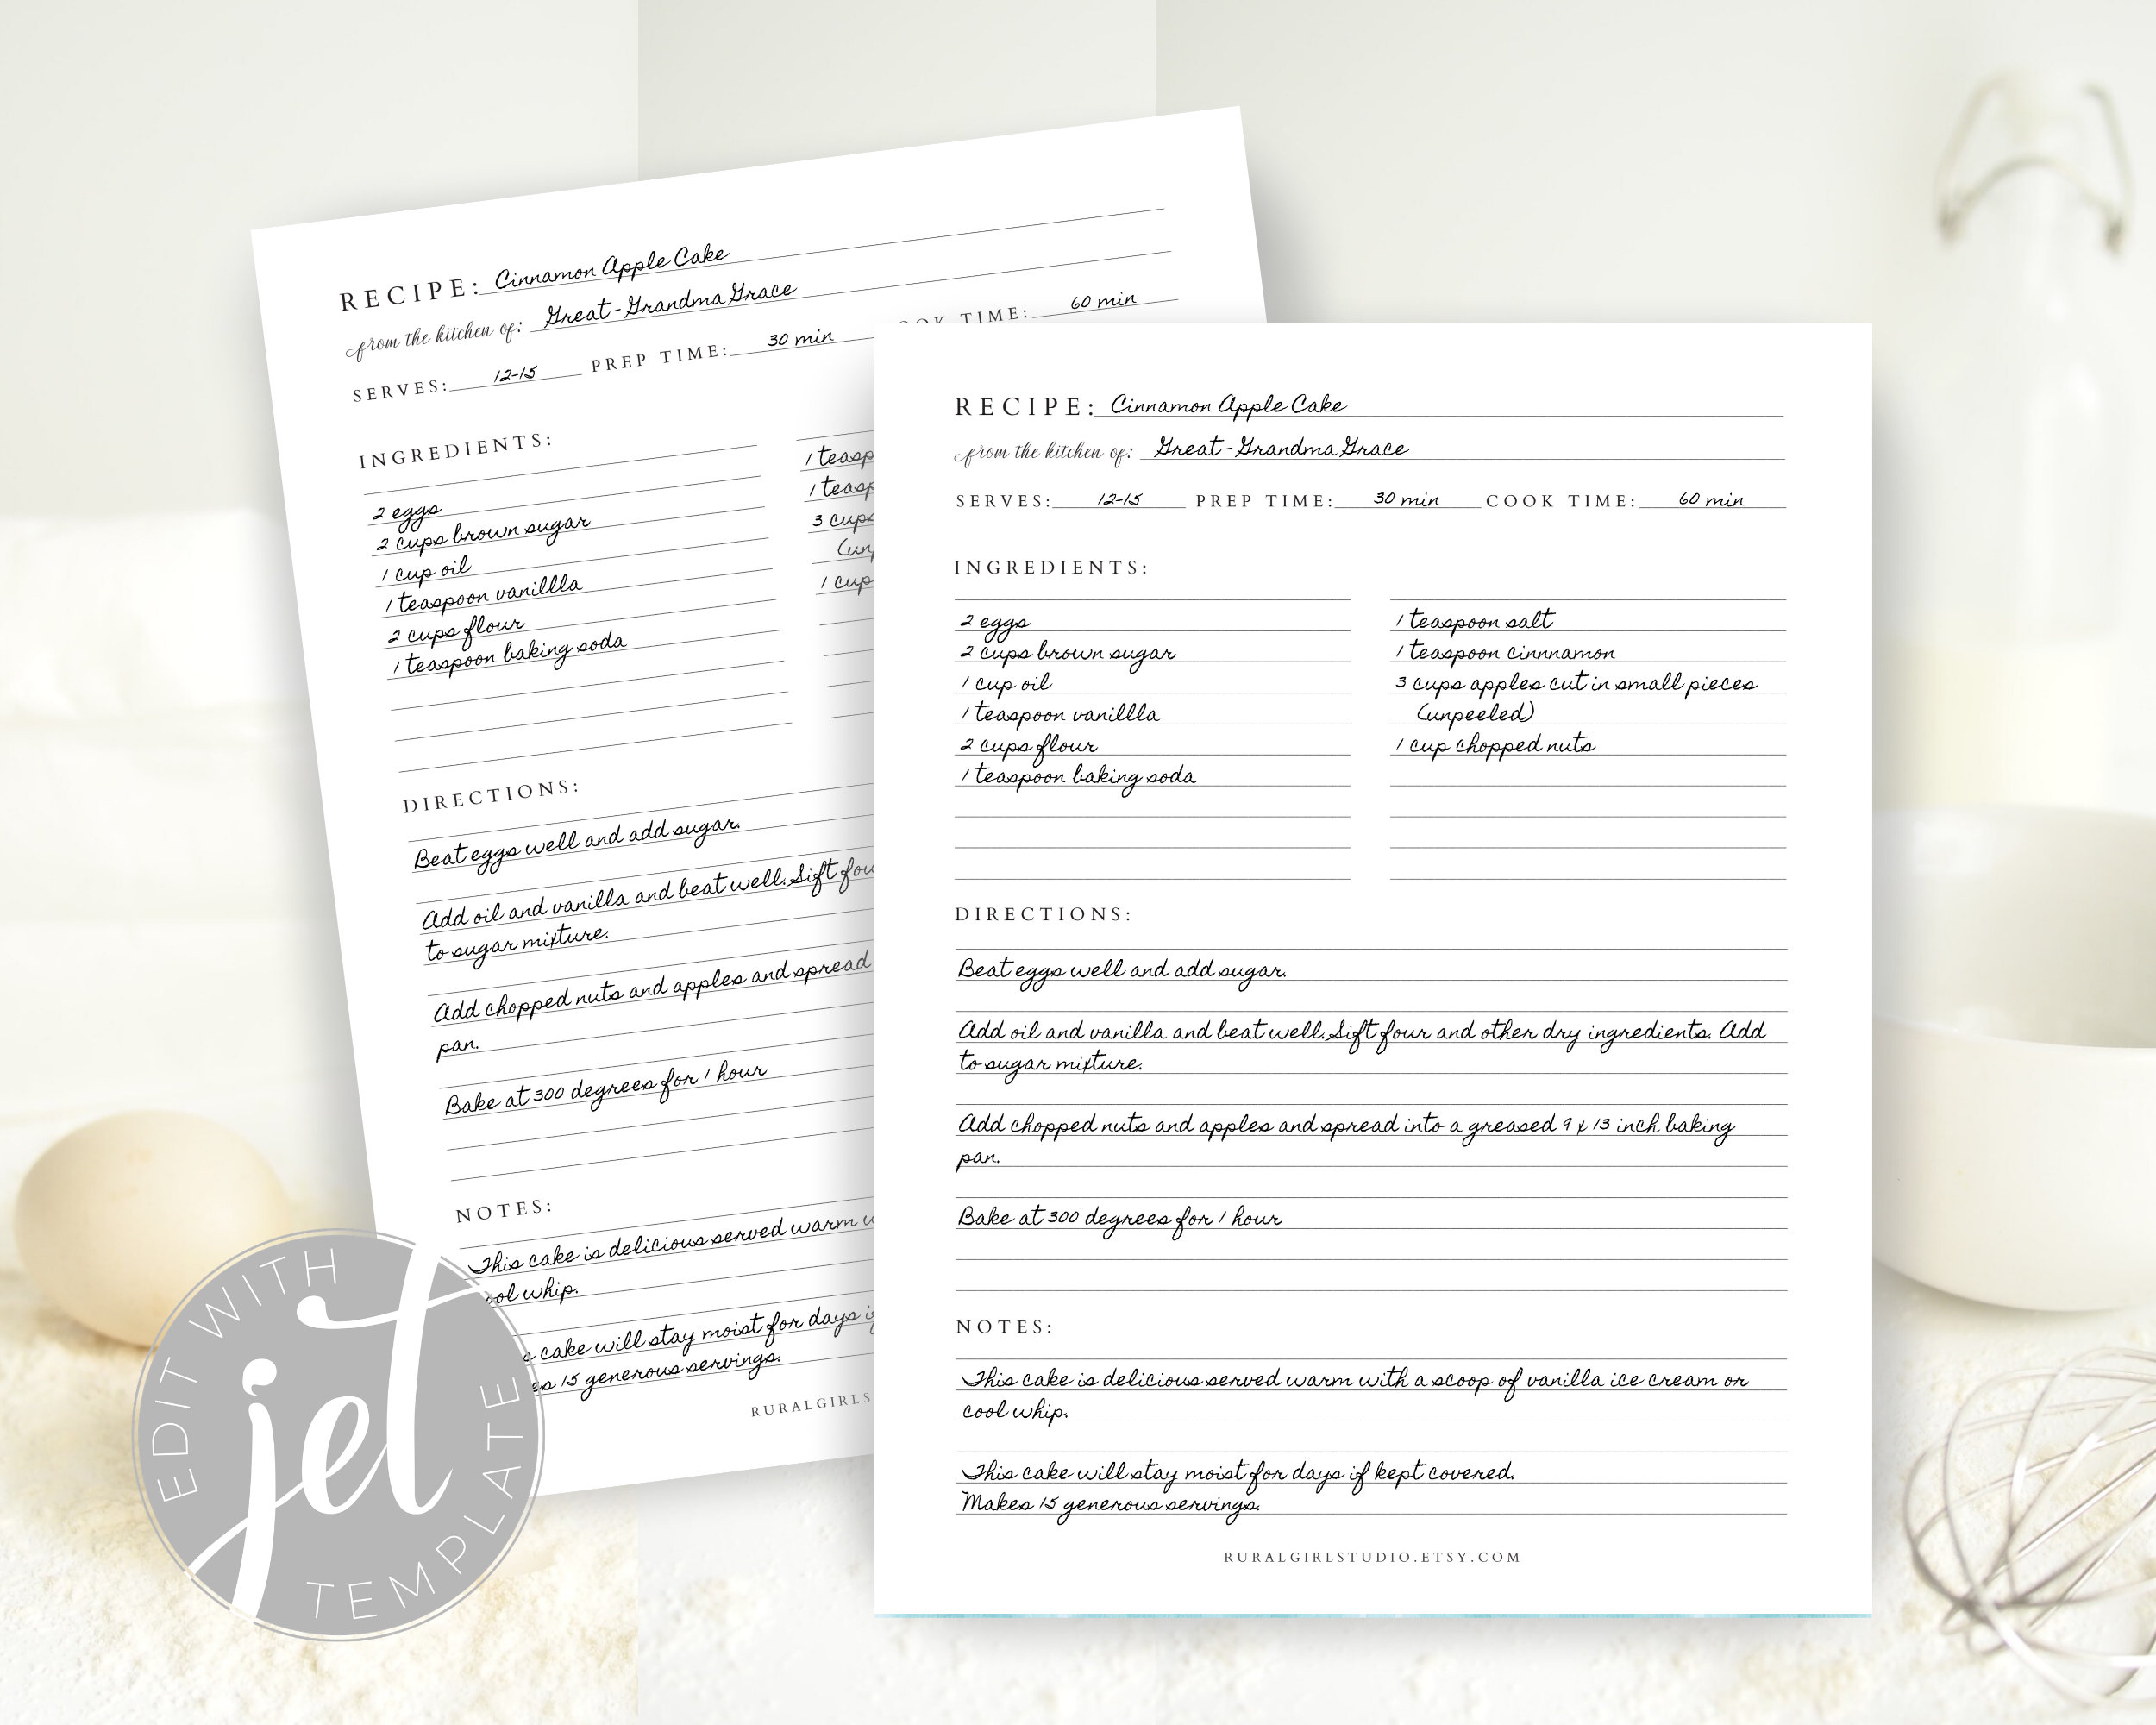 RECIPE: Cinnamon Apple Cake
from the kitchen of: Great-Grandma Grace
SERVES: 12-15 PREP TIME: 30 min COOK TIME: 60 min
INGREDIENTS:
2 eggs
2 cups brown sugar
1 cup oil
1 teaspoon vanillla
2 cups flour
1 teaspoon baking soda
1 teasp
1 teasp
3 cups
(unp
1 cup
DIRECTIONS:
Beat eggs well and add sugar.
Add oil and vanilla and beat well. Sift fou
to sugar mixture.
Add chopped nuts and apples and spread
pan.
Bake at 300 degrees for 1 hour
NOTES:
This cake is delicious served warm w
ool whip.
cake will stay moist for days if
es 15 generous servings.
RURALGIRLS
RECIPE: Cinnamon Apple Cake
from the kitchen of: Great-Grandma Grace
SERVES: 12-15 PREP TIME: 30 min COOK TIME: 60 min
INGREDIENTS:
2 eggs
2 cups brown sugar
1 cup oil
1 teaspoon vanillla
2 cups flour
1 teaspoon baking soda
1 teaspoon salt
1 teaspoon cinnnamon
3 cups apples cut in small pieces
(unpeeled)
1 cup chopped nuts
DIRECTIONS:
Beat eggs well and add sugar.
Add oil and vanilla and beat well. Sift four and other dry ingredients. Add
to sugar mixture.
Add chopped nuts and apples and spread into a greased 9 x 13 inch baking
pan.
Bake at 300 degrees for 1 hour
NOTES:
This cake is delicious served warm with a scoop of vanilla ice cream or
cool whip.
This cake will stay moist for days if kept covered.
Makes 15 generous servings.
RURALGIRLSTUDIO.ETSY.COM
EDIT WITH
jet
TEMPLATE